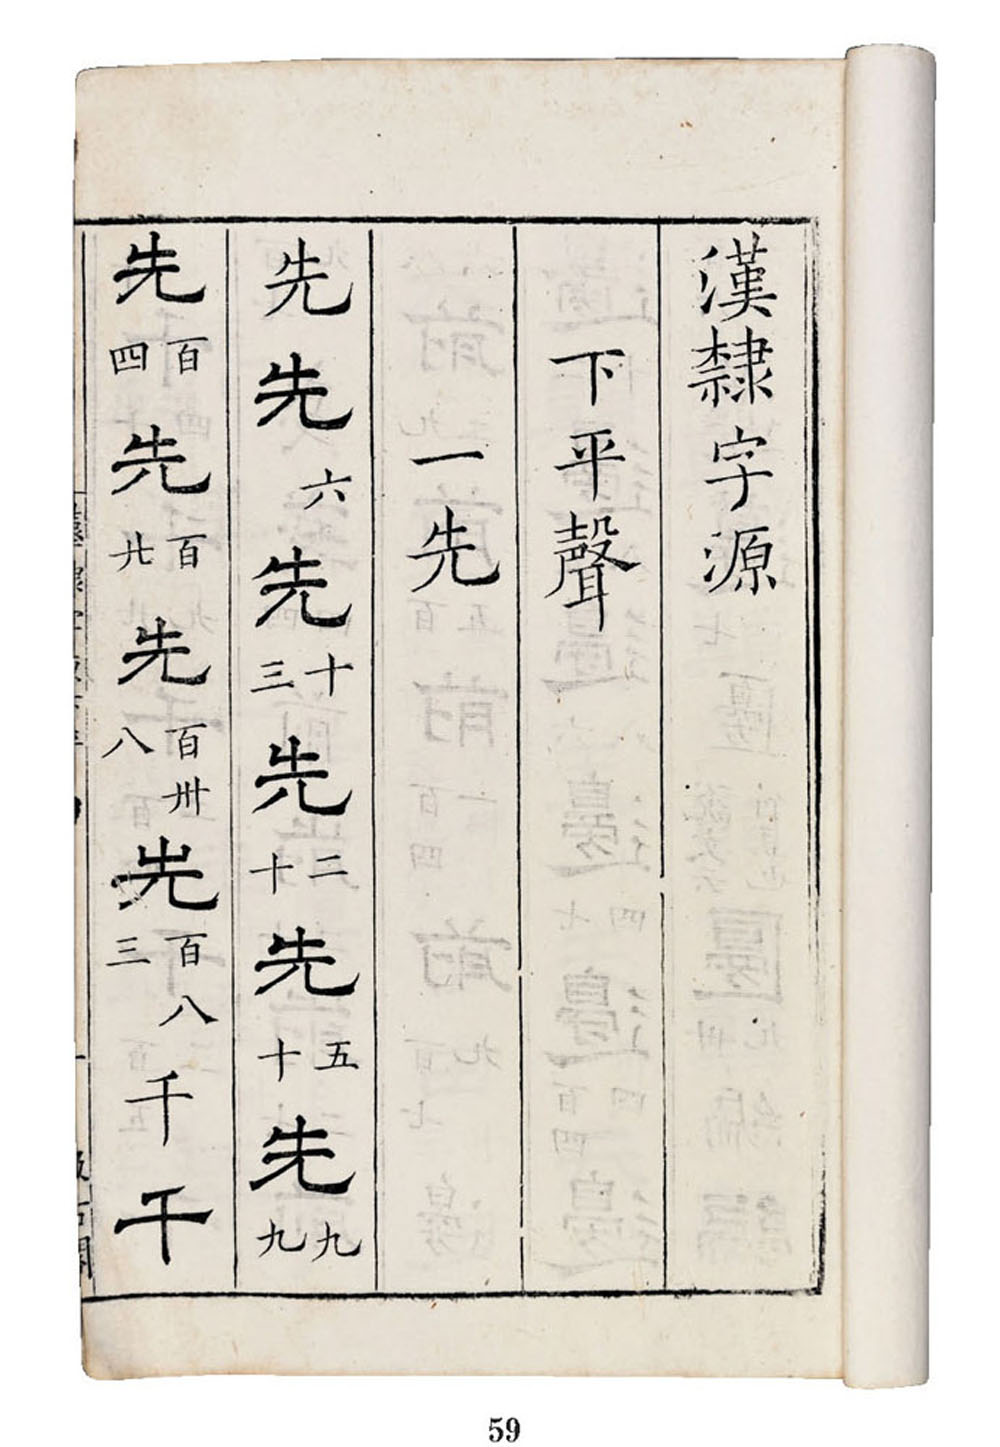 漢隸字源
下平聲
一先
先先六先十三先二十先五十先九九
先百四先百廿先百卅八先百八三千千
59